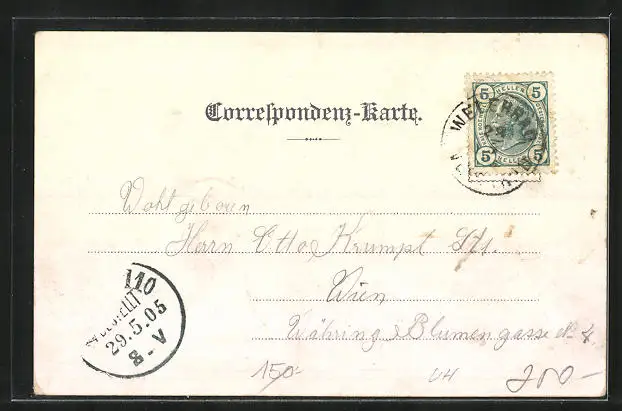 Correspondenz-Karte.
5 HELLER 5
5 HELLER 5
Wohlgeboren
Herrn Otto Krumpt
Wien
Währing Blumengasse No 4
110
BESTELLT
29.5.05
8-V
150-
VH
200-